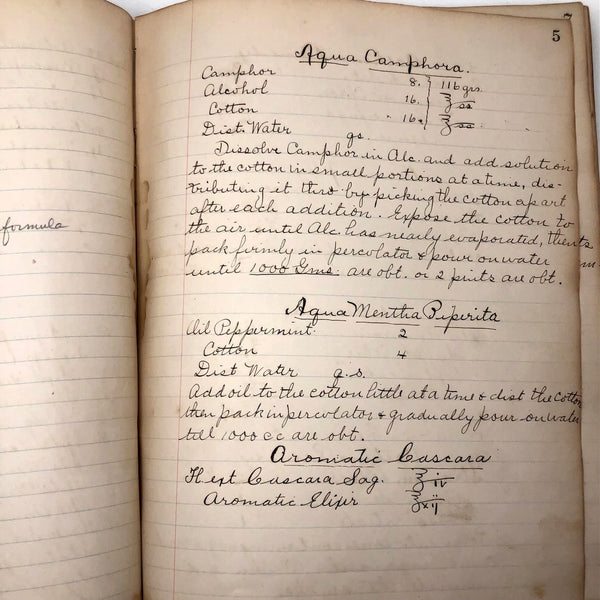 7
5
Aqua Camphora.
Camphor 8. 116 grs
Alcohol 16. ℥ss
Cotton 16. ℥ss
Dist. Water qs.
Dissolve Camphor in Alc. and add solution
to the cotton in small portions at a time, dis-
tributing it thro by picking the cotton apart
after each addition. Expose the cotton to
the air until Alc. has nearly evaporated, then
pack firmly in perculator & pour on water
until 1000 Gms. are obt. or 2 pints are obt.
formula
Aqua Mentha Piperita
Oil Peppermint. 2
Cotton 4
Dist Water q.s.
Add oil to the cotton little at a time & dist the cotton
then pack in perculator & gradually pour on water
till 1000 cc are obt.
Aromatic Cascara
Fl ext Cascara Sag. ℥iv
Aromatic Elixir ℥xii